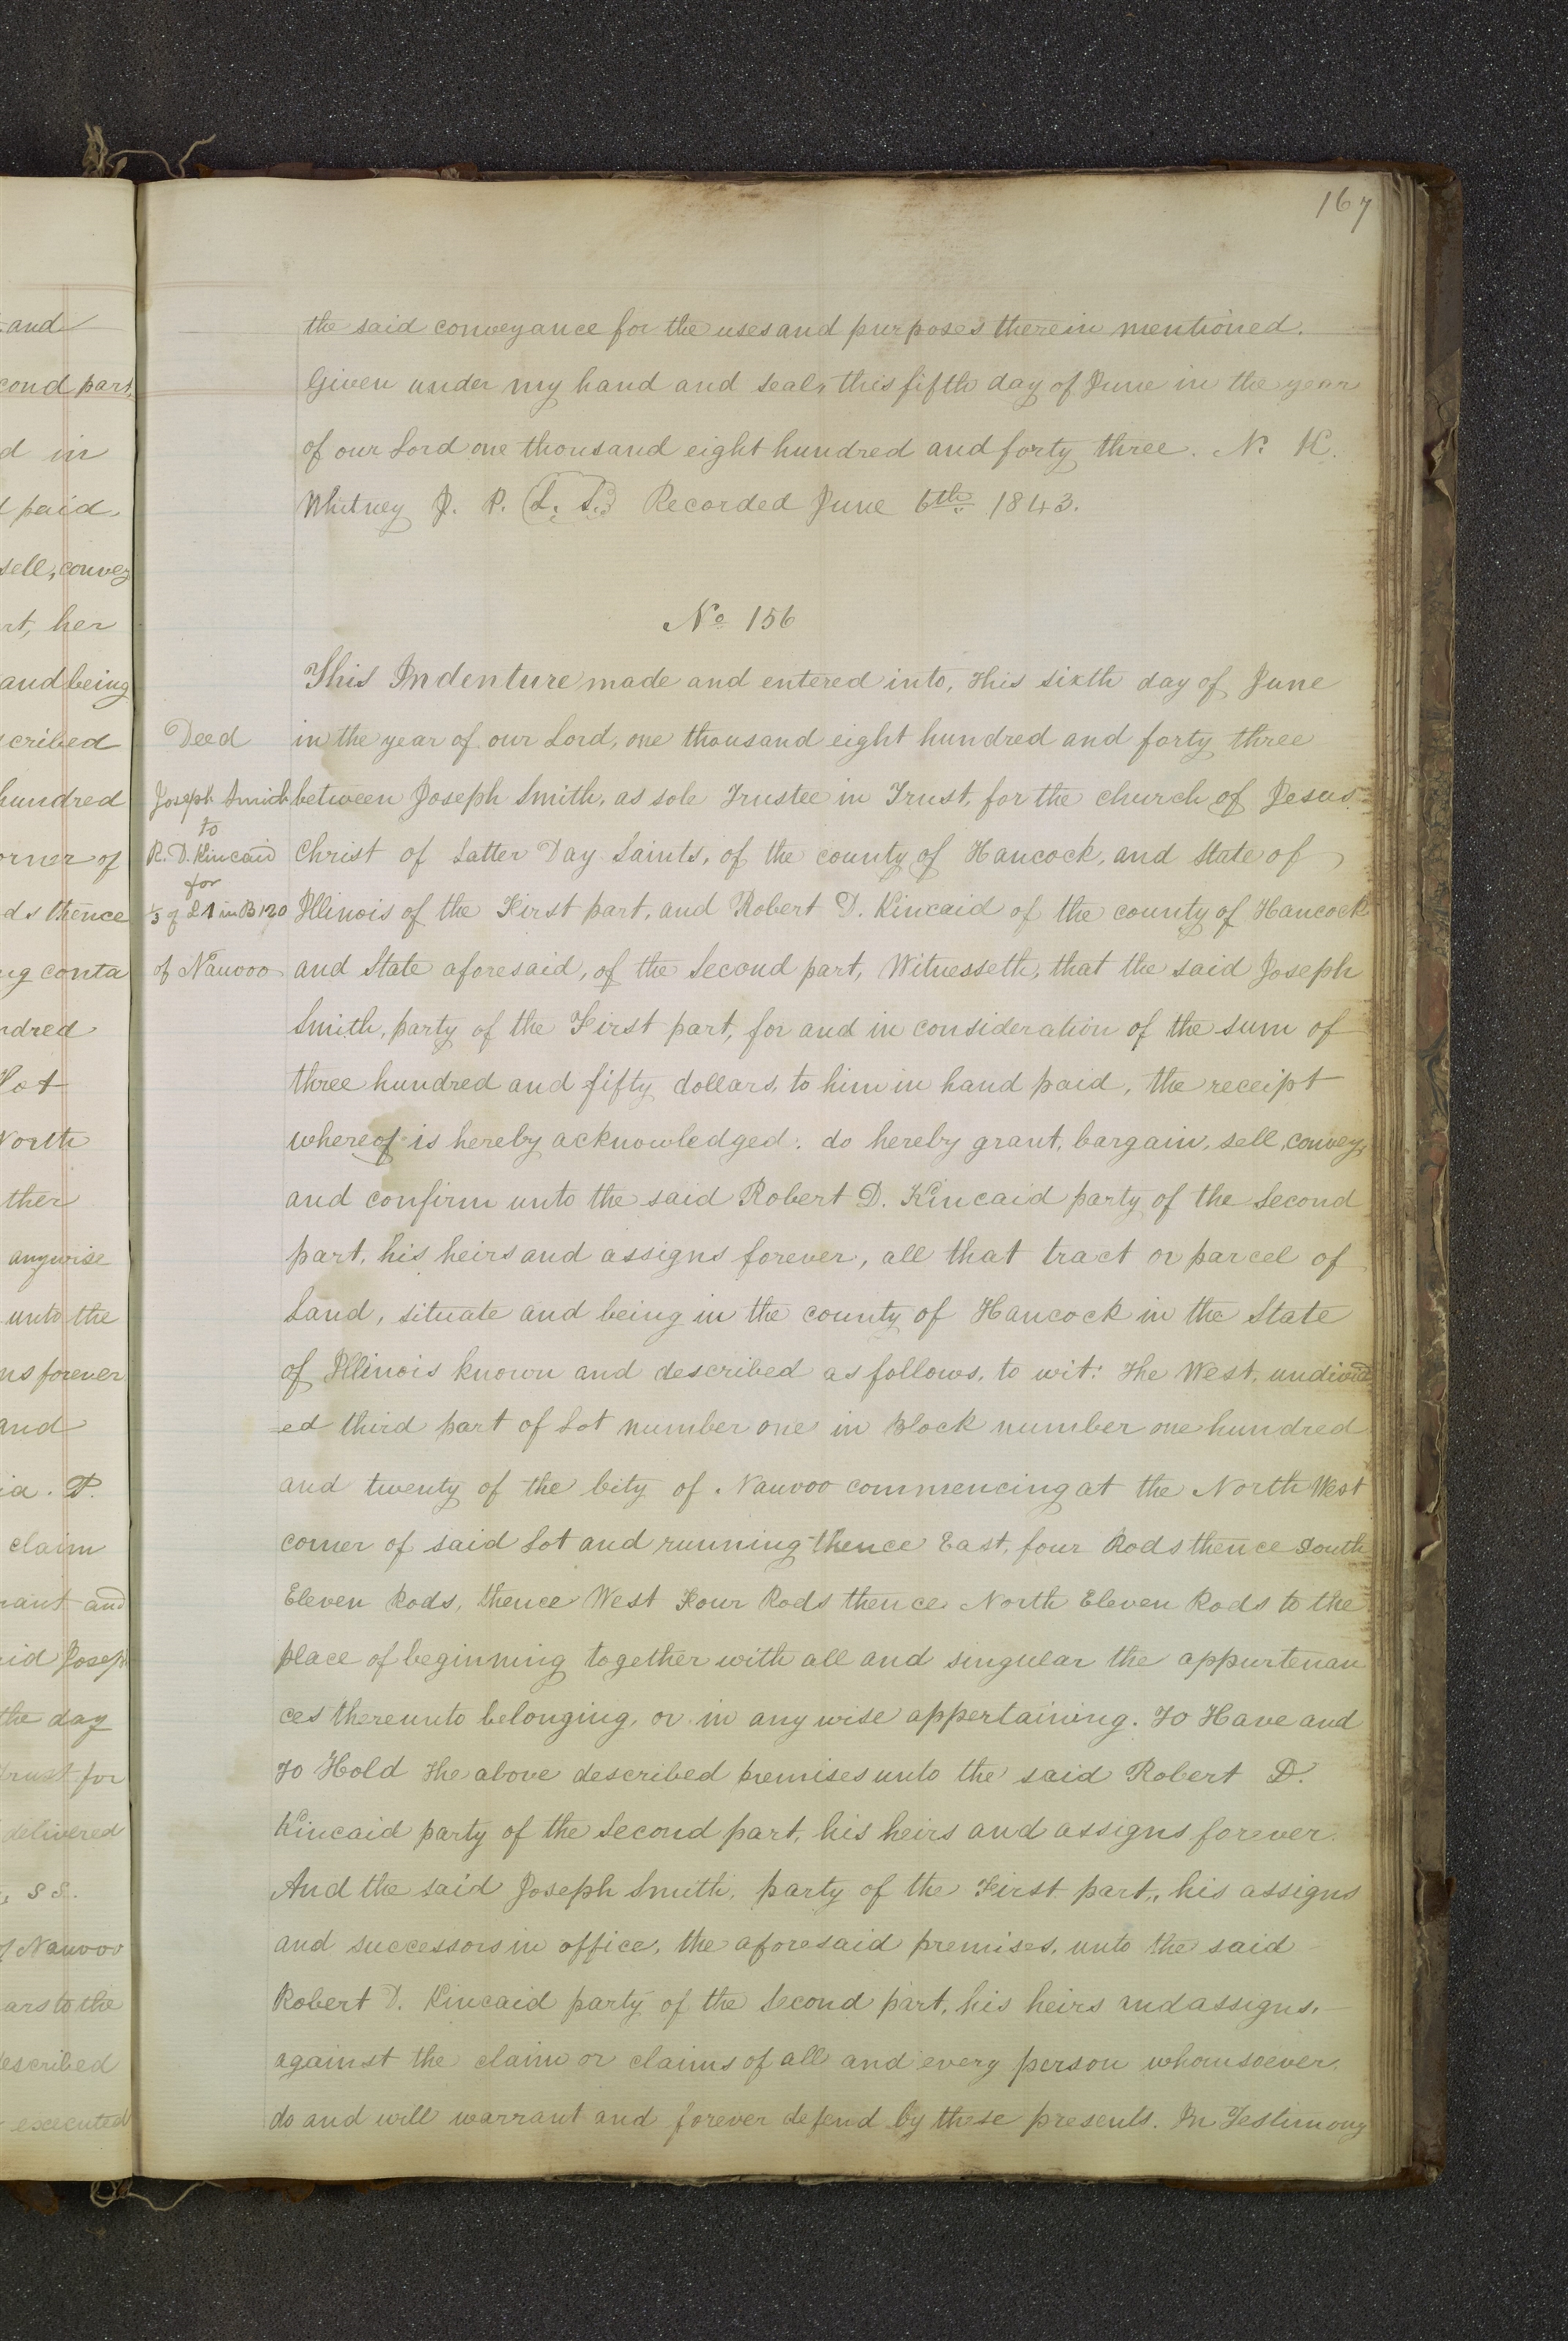 167
the said conveyance for the uses and purposes therein mentioned.
Given under my hand and seal, this fifth day of June in the year
of our Lord one thousand eight hundred and forty three. N. K.
Whitney J. P. (L. S.) Recorded June 6th 1843.
No 156
This Indenture made and entered into, this sixth day of June
in the year of our Lord, one thousand eight hundred and forty three
between Joseph Smith, as sole Trustee in Trust, for the church of Jesus
Christ of Latter Day Saints, of the county of Hancock, and State of
Illinois of the First part, and Robert D. Kincaid of the county of Hancock
and State aforesaid, of the Second part, Witnesseth, that the said Joseph
Smith, party of the First part, for and in consideration of the sum of
three hundred and fifty dollars, to him in hand paid, the receipt
whereof is hereby acknowledged: do hereby grant, bargain, sell, convey,
and confirm unto the said Robert D. Kincaid party of the Second
part, his heirs and assigns forever, all that tract or parcel of
Land, situate and being in the county of Hancock in the State
of Illinois known and described as follows, to wit: The West, undivid
ed third part of Lot number one in Block number one hundred
and twenty of the City of Nauvoo commencing at the North West
corner of said Lot and running thence East, four Rods thence South
Eleven Rods, thence West Four Rods thence North Eleven Rods to the
place of beginning together with all and singular the appurtenan
ces thereunto belonging, or in any wise appertaining. To Have and
To Hold the above described premises unto the said Robert D.
Kincaid party of the Second part, his heirs and assigns forever.
And the said Joseph Smith, party of the First part, his assigns
and successors in office, the aforesaid premises, unto the said
Robert D. Kincaid party of the Second part, his heirs and assigns,
against the claim or claims of all and every person whomsoever,
do and will warrant and forever defend by these presents. In Testimony
Deed
Joseph Smith
to
R. D. Kincaid
for
1/3 of L 1 in B 120
of Nauvoo
and
cond part,
d in
paid,
sell, convey
rt, her
and being
scribed
hundred
orner of
ds thence
ng conta
ndred
Lot
North
ther
anywise
unto the
ns forever
and
ia. P.
claim
rant and
id Joseph
the day
Trust for
delivered
, S S.
of Nauvoo
ars to the
described
executed